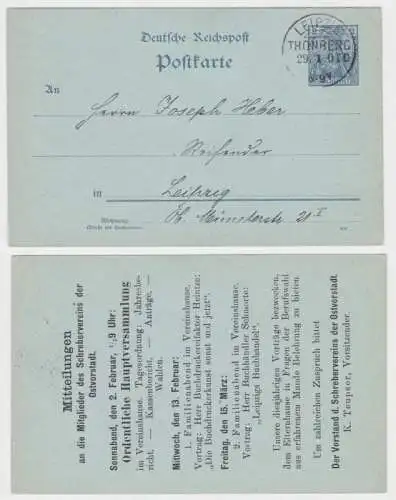 Deutsche Reichspost
Postkarte
LEIPZIG
THONBERG
An
Herrn Joseph Heber
in
Leipzig
Wohnung
(Straße und Hausnummer)
Mitteilungen
an die Mitglieder des Schrebervereins der
Ostvorstadt.
Sonnabend, den 2. Februar, ½9 Uhr:
Ordentliche Hauptversammlung
im Vereinshause. Tagesordnung: Jahresbe-
richt. — Kassenbericht. — Anträge. —
Wahlen.
Mittwoch, den 13. Februar:
1. Familienabend im Vereinshause.
Vortrag: Herr Buchdruckereifaktor Heintze:
„Die Buchdruckerkunst sonst und jetzt“.
Freitag, den 15. März:
2. Familienabend im Vereinshause.
Vortrag: Herr Buchhändler Schmorte:
„Leipzigs Buchhandel“.
Unsere diesjährigen Vorträge bezwecken,
dem Elternhause in Fragen der Berufswahl
aus erfahrenem Munde Belehrung zu bieten.
Um zahlreichen Zuspruch bittet
Der Vorstand d. Schrebervereins der Ostvorstadt.
K. Teupser, Vorsitzender.